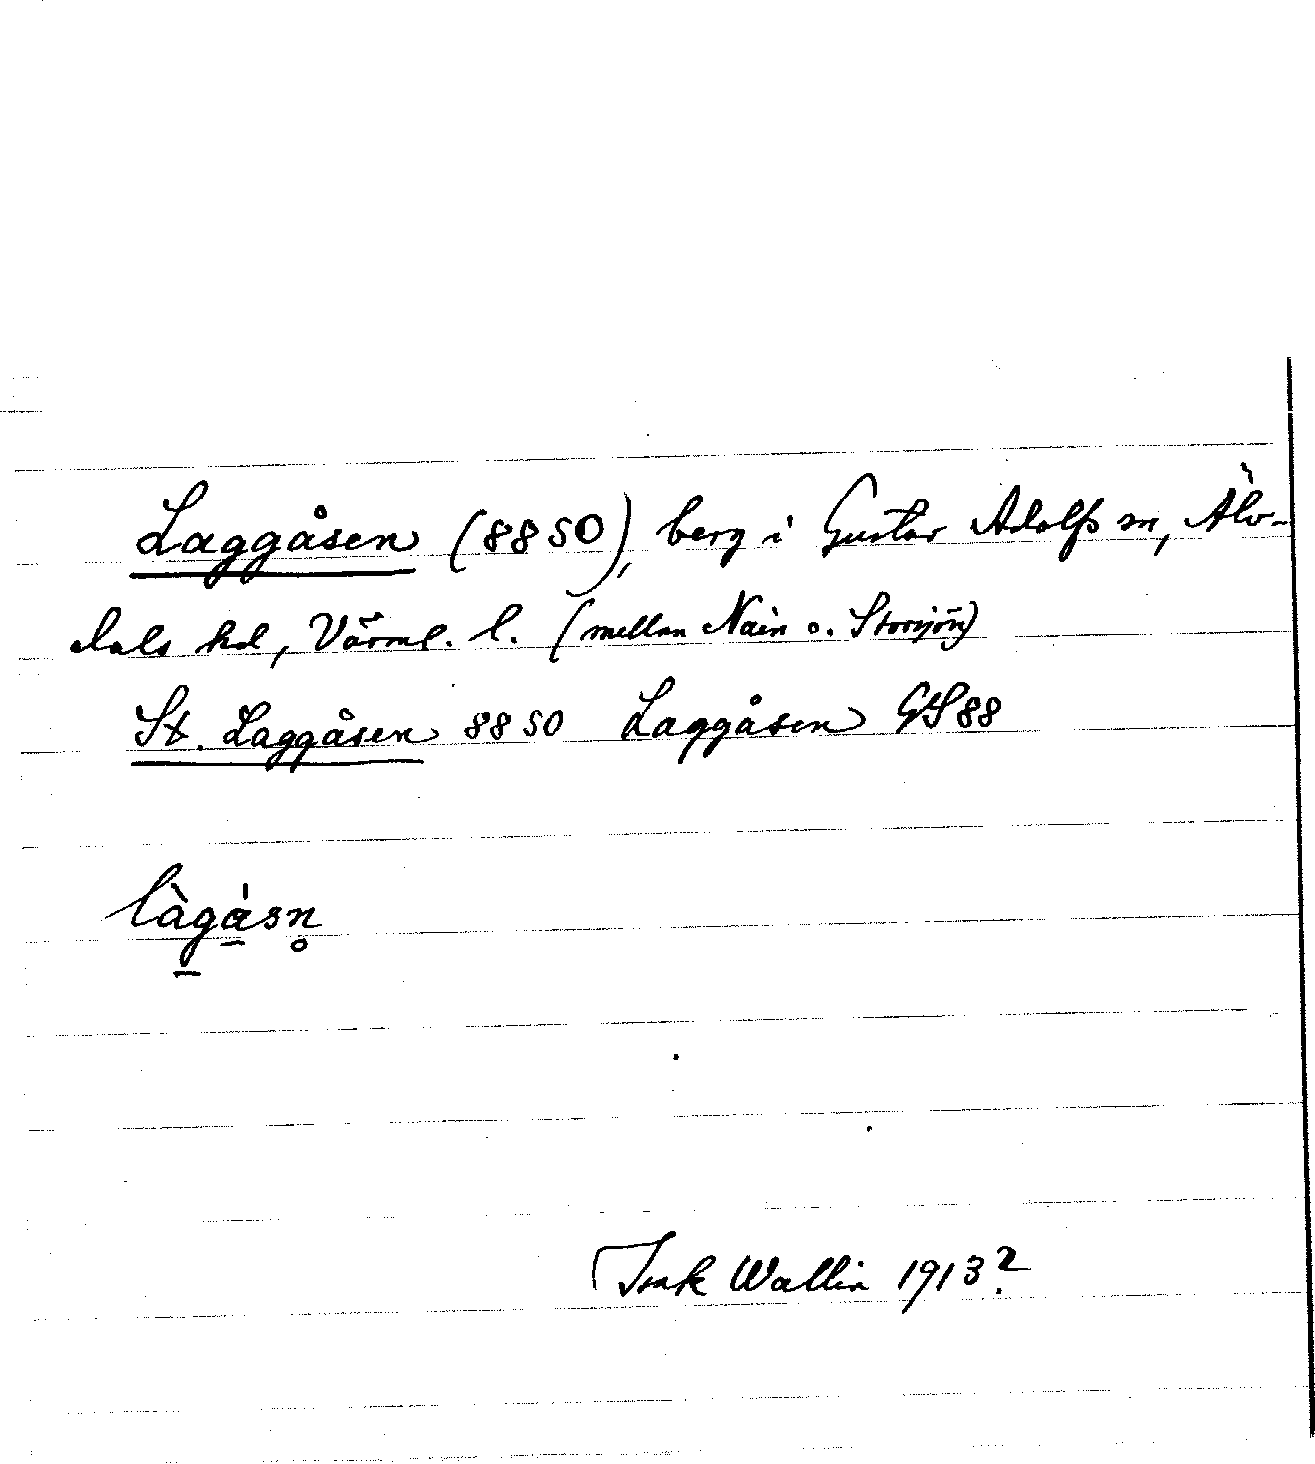 Laggåsen (8850), berg i Gustav Adolfs sn, Älv-
dals hd, Värml. l. (mellan Nain o. Storsjön)
St. Laggåsen 8850 Laggåsen GS88
làgásn̥
Isak Wallin 1913?